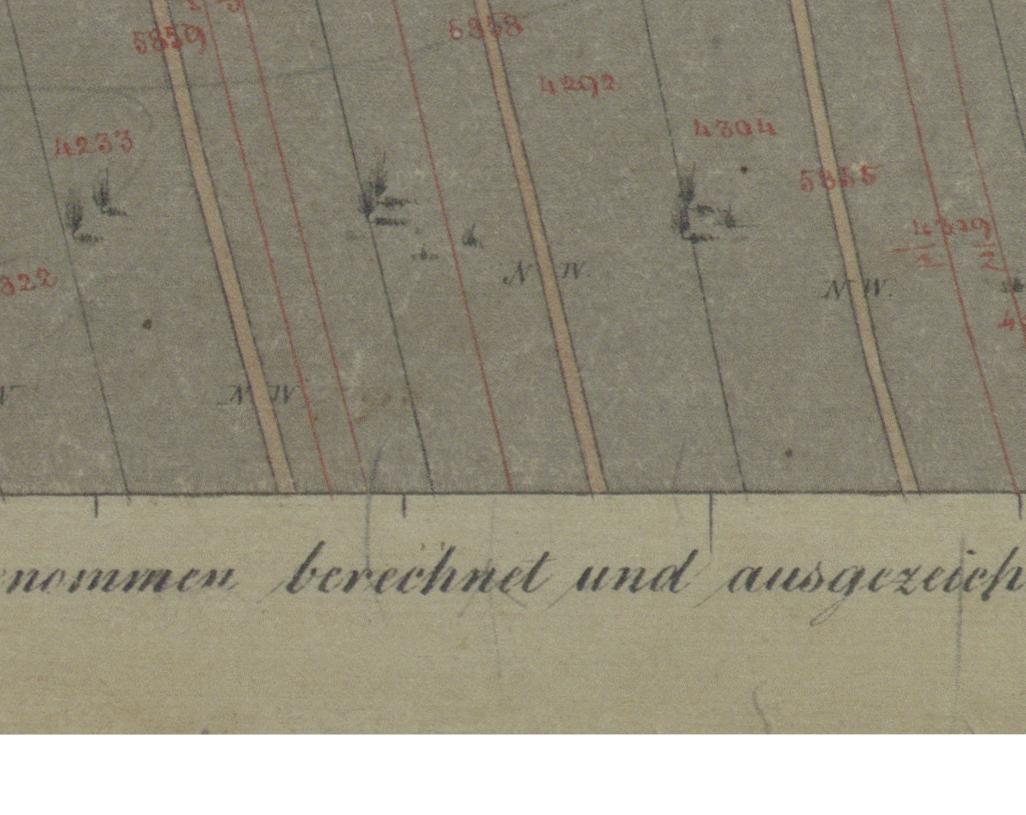 5859
5858
4292
4233
4304
5855
322
N W.
N W.
N W
nommen berechnet und ausgezeich